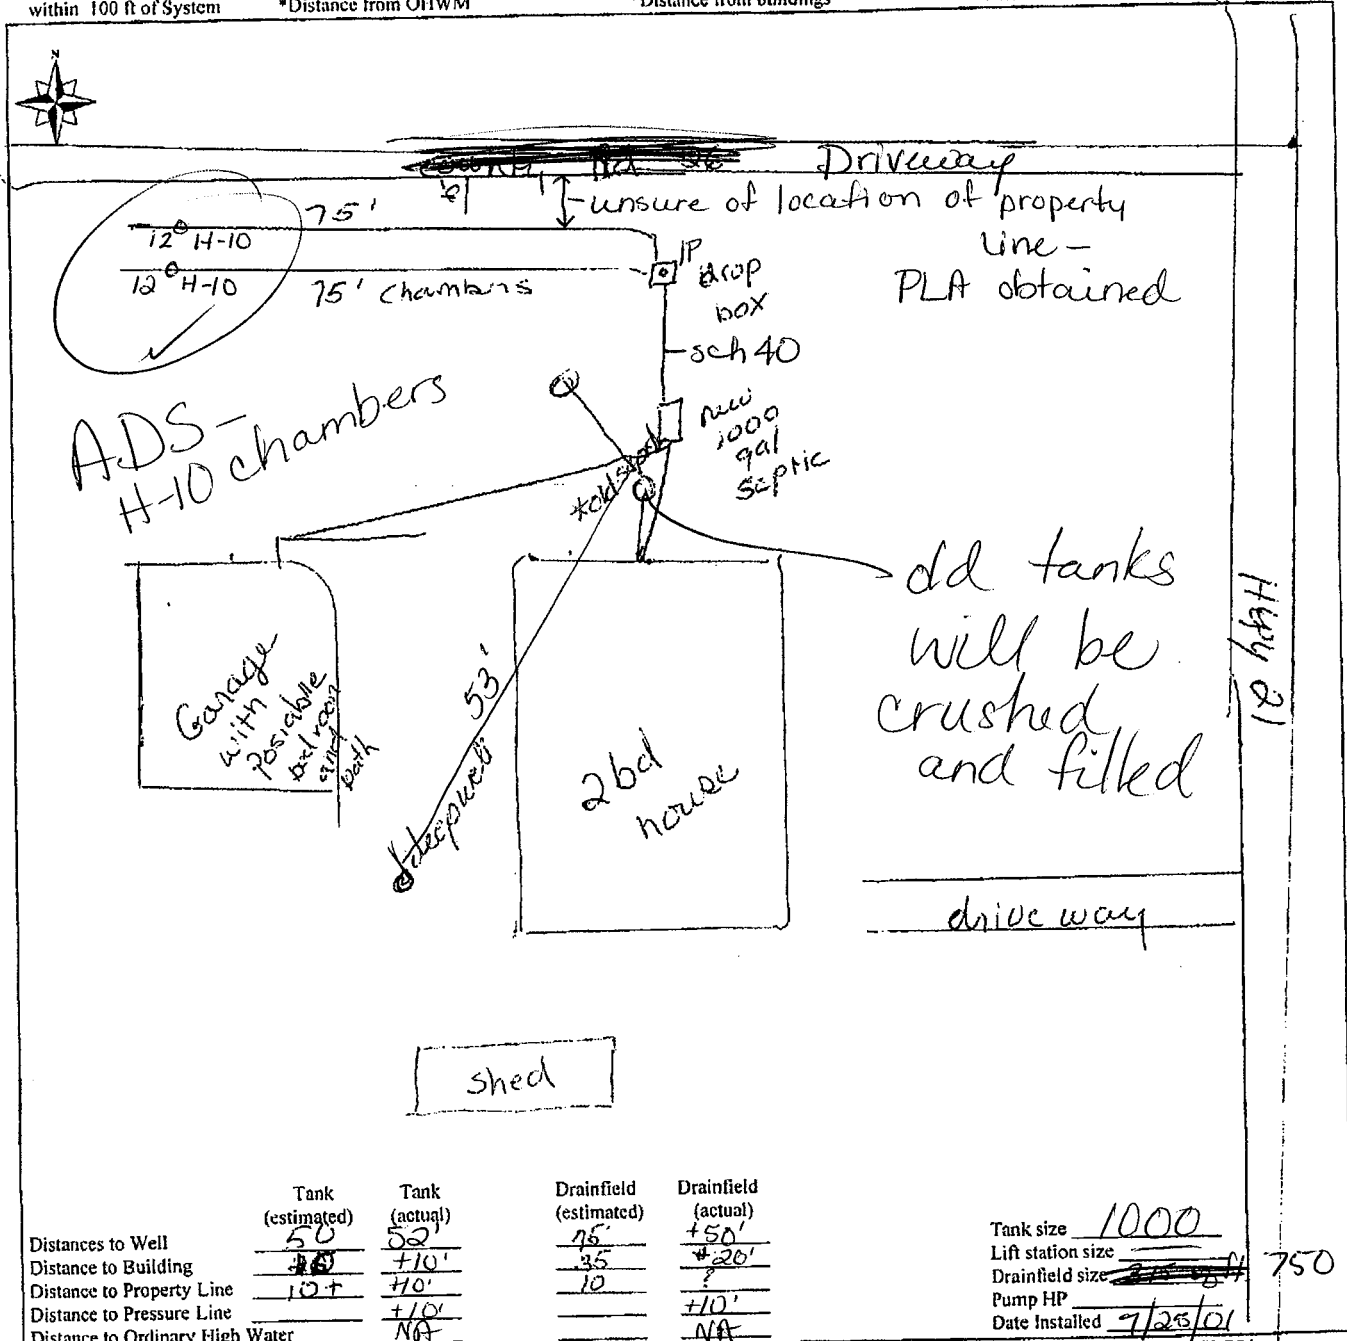 within 100 ft of System *Distance from OHWM *Distance from buildings
N
Driveway
75'
unsure of location of property
line -
PLA obtained
12 H-10
12 H-10
75' chambers
IP
drop
box
sch 40
ADS -
H-10 chambers
new
1000
gal
septic
*old septic
old tanks
will be
crushed
and filled
Hwy 21
Garage
with
Posiable
bedroom
and
bath
53'
deepwell
2bd
house
drive way
shed
Tank Tank Drainfield Drainfield
(estimated) (actual) (estimated) (actual)
Distances to Well 50 52' 75' +50'
Distance to Building +10' 35 20'
Distance to Property Line 10+ +10' 10 ?
Distance to Pressure Line +10' +10'
Distance to Ordinary High Water NA NA
Tank size 1000
Lift station size
Drainfield size 750
Pump HP
Date Installed 9/25/01